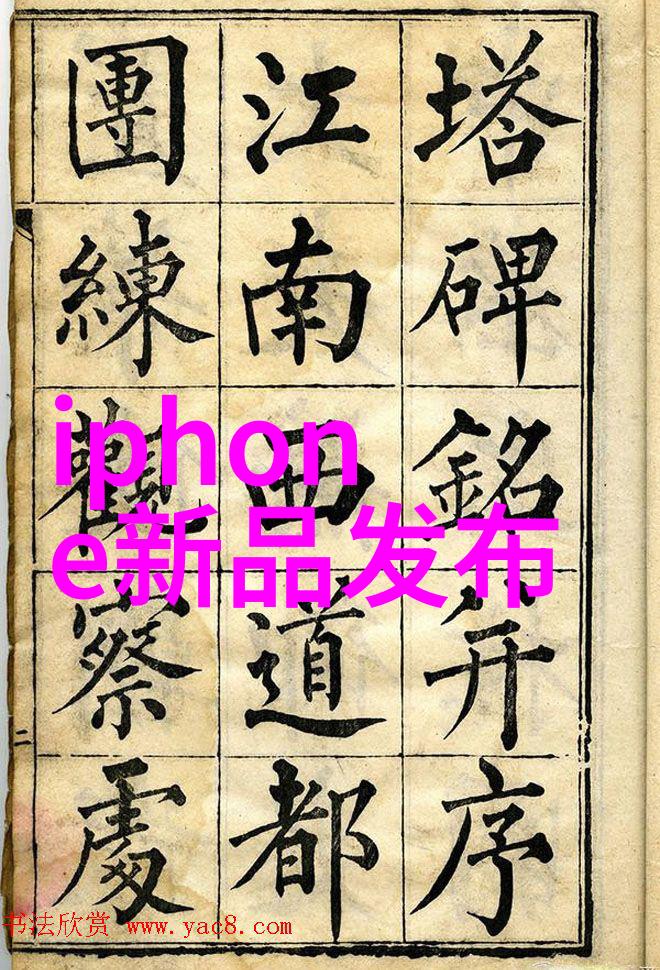 塔碑銘并序
江南西道都
團練觀察處
iphon
e新品发布
二
书法欣赏 www.yac8.com